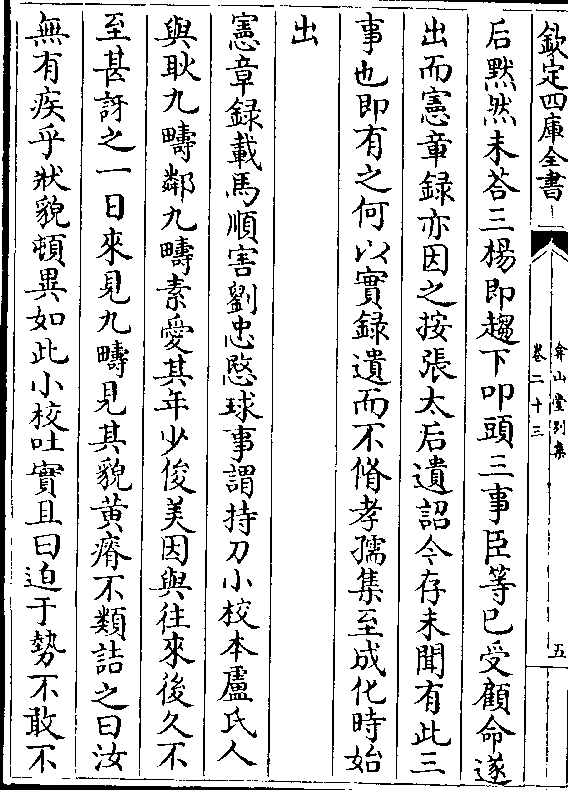 欽定四庫全書
弇山堂別集
卷二十三
五
后黙然未荅三楊即趨下叩頭三事臣等已受顧命遂
出而憲章録亦因之按張太后遺詔今存未聞有此三
事也即有之何以實録遺而不脩孝孺集至成化時始
出
憲章録載馬順害劉忠愍球事謂持刀小校本盧氏人
與耿九疇鄰九疇素愛其年少俊美因與往來後久不
至甚訝之一日來見九疇見其貌黄瘠不類詰之曰汝
無有疾乎狀貌頓異如此小校吐實且曰迫于勢不敢不